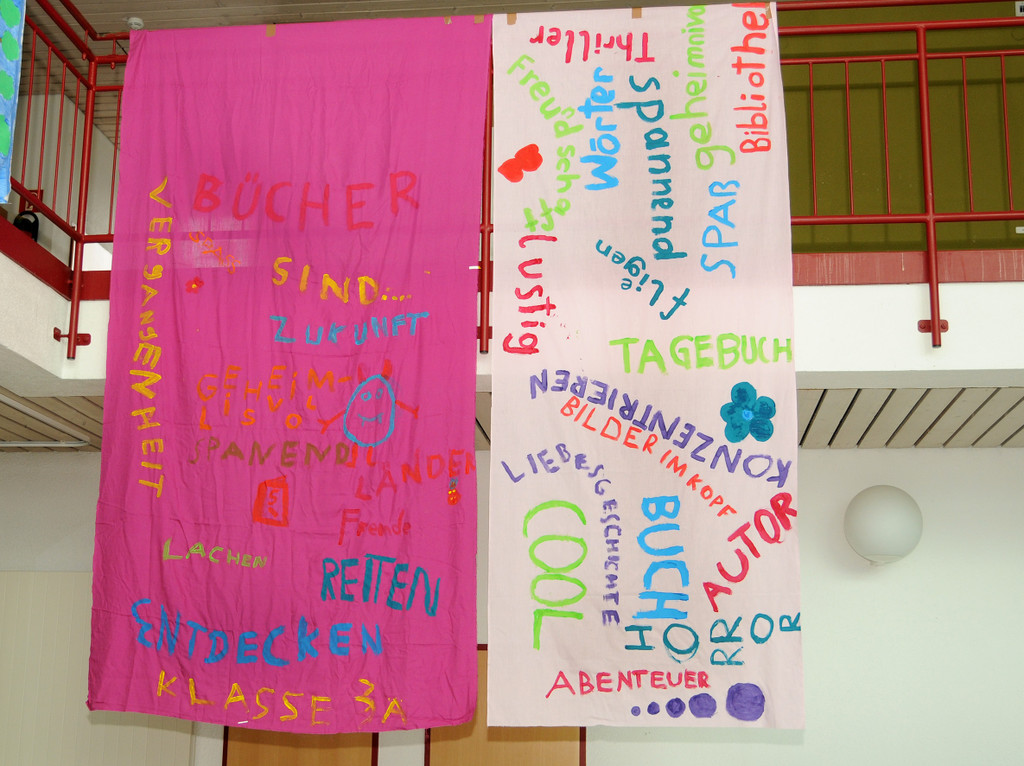 BÜCHER
VERGANGENHEIT
SIND....
ZUKUNFT
GEHEIM-
SPANEND
LÄNDER
Fremde
LACHEN
REITEN
ENTDECKEN
KLASSE 3A
Thriller
Freundschaft
Wörter
Spannend
geheimnivo
Bibliothek
SPAß
Lustig
fliegen
TAGEBUCH
KONZENTRIEREN
BILDER IM KOPF
LIEBESGESCHICHTE
COOL
BUCH
AUTOR
HORROR
ABENTEUER